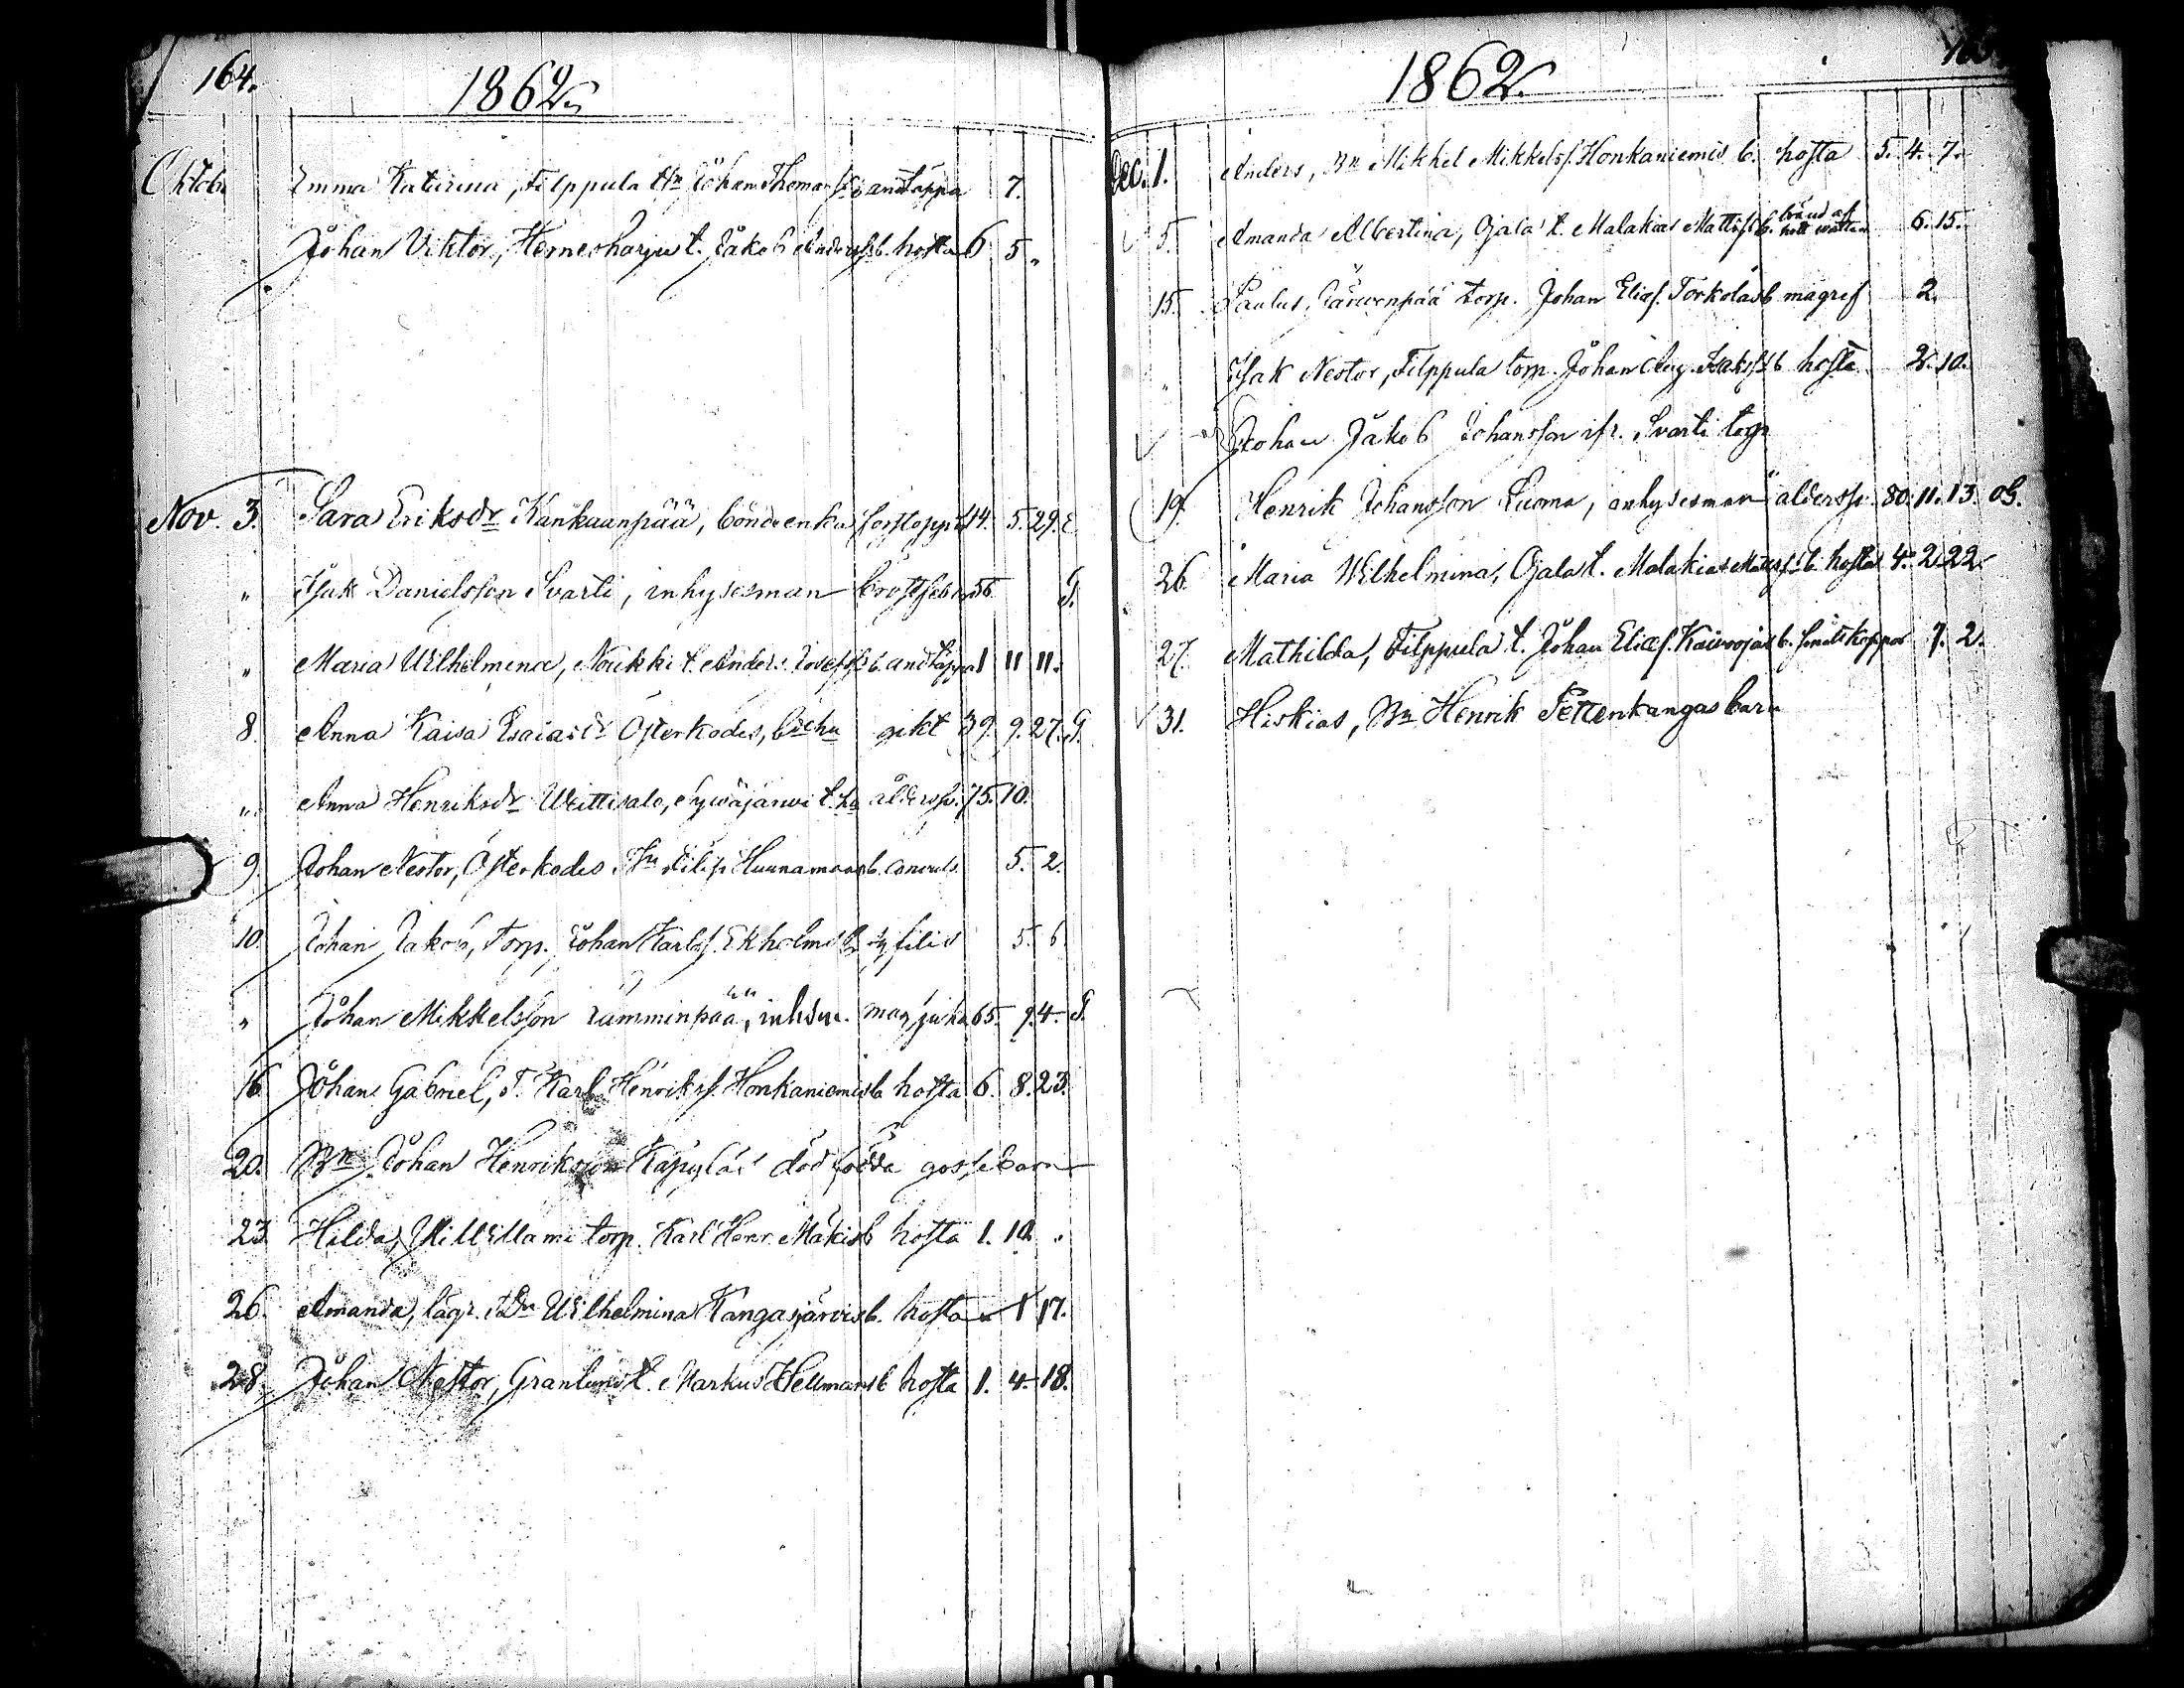 164.
1862.
Oktob. Emma Katarina, Filppula Johan Thomas andtäppa 7.
Johan Viktor, Herneoharju t. Jakob Anderss. b. hosta 6 5 "
Nov. 3. Sara Eriksdr Kankaanpää, bondeenka 5. 29.
" Isak Danielsson Svarti, inhysesman bröstfeber 56 G.
" Maria Wilhelmina, Noukki t. Anders b. andtäppa 1 11 11.
8. Anna Kaisa Esaiasdr Österkodes, gikt 39. 9. 27. G.
" Anna Henriksdr Weittisalo, Syväjärvi ålderdsv. 75. 10.
9. Johan Nestor, Österkodes Filip Huunamaas b. convuls. 5. 2.
10. Johan Jakob, Torp. Johan Karlss. Ekholms b. syfilis 5. 6
" Johan Mikkelsson mag sjuka 65. 9. 4. G.
16 Johan Gabriel, T. Karl Henrikss. Honkaniemis b hosta 6. 8. 23.
20. Bn Johan Henriksson Käpylás död födda gossebarn
23 Hilda, torp. Karl Henr. Mäkis b hosta 1. 10.
26. Amanda, Wilhelmina Kangasjärvis b. hosta 1 17.
28. Johan Nestor, Granlund t. Markus Hellmans b hosta 1. 4. 18.
1862.
Dec. 1. Anders, Bn Mikkel Mikkelss. Honkaniemis b. hosta 5. 4. 7.
5. Amanda Albertina, Ojala t. Malakias Mattss. b. bränd af hett watten 6. 15.
15. Paulus, Järvenpää torp. Johan Eliass. Torkolas b magref 2.
" Isak Nestor, Filppula torp. Johan Aug. Isakss. b hosta 2. 10.
Johan Jakob Johansson ifr. Svarti torp
19. Henrik Johansson Luoma, inhysesman ålderdsv. 80. 11. 13. G.
26. Maria Wilhelmina, Ojala t. Malakias Mattss. b. hosta 4. 2. 22.
27. Mathilda, Filppula t. Johan Eliass. Kaivoojas b. smittkoppor 7. 2.
31. Hiskias, Bn Henrik Pettenkangas barn